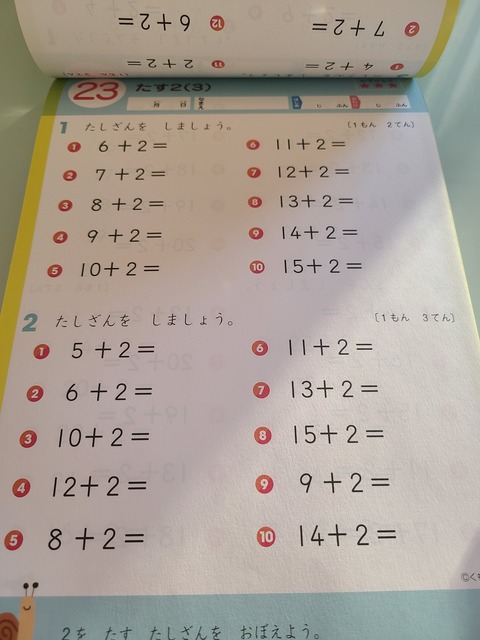 12 6+2=
2 7+2=
11 2+2=
1 4+2=
23 たす2(3)
月 日 なまえ じ ふん じ ふん
1 たしざんを しましょう。 〔1もん 2てん〕
1 6+2= 6 11+2=
2 7+2= 7 12+2=
3 8+2= 8 13+2=
4 9+2= 9 14+2=
5 10+2= 10 15+2=
2 たしざんを しましょう。 〔1もん 3てん〕
1 5+2= 6 11+2=
2 6+2= 7 13+2=
3 10+2= 8 15+2=
4 12+2= 9 9+2=
5 8+2= 10 14+2=
©くも
2を たす たしざんを おぼえよう。